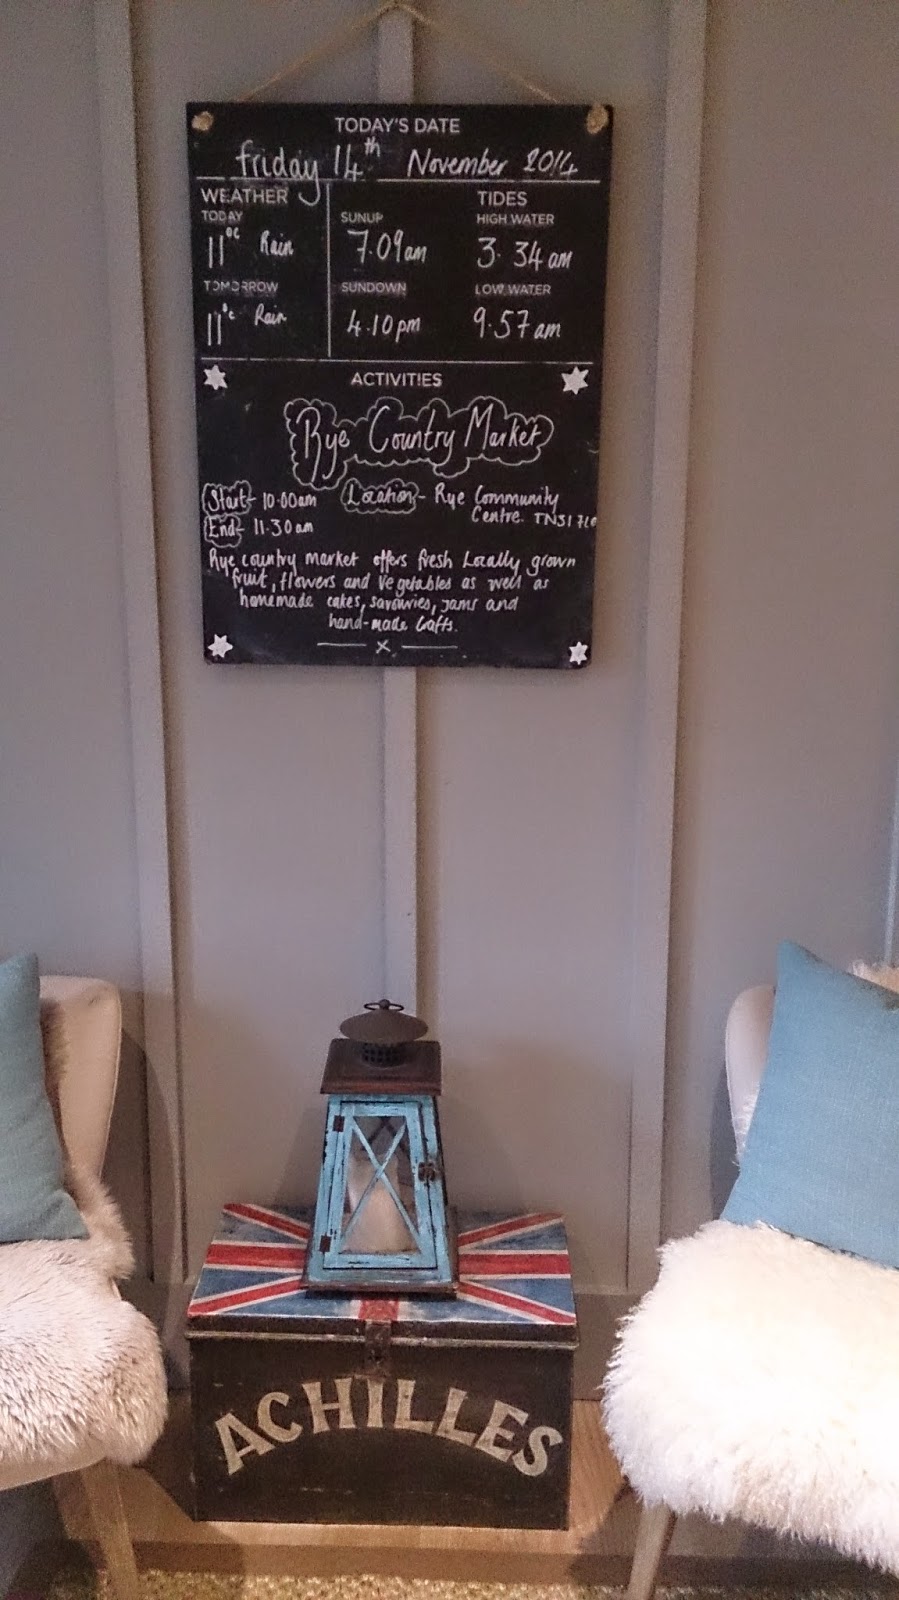 TODAY'S DATE
Friday 14th November 2014
WEATHER
TODAY
11°C Rain
TOMORROW
11°C Rain
SUNUP
7.09am
SUNDOWN
4.10pm
TIDES
HIGH WATER
3.34am
LOW WATER
9.57am
ACTIVITIES
Rye Country Market
Start - 10.00am
End - 11.30am
Location - Rye Community
Centre. TN31
Rye country market offers fresh Locally grown
fruit, flowers and vegetables as well as
homemade cakes, savouries, jams and
hand-made Crafts.
ACHILLES